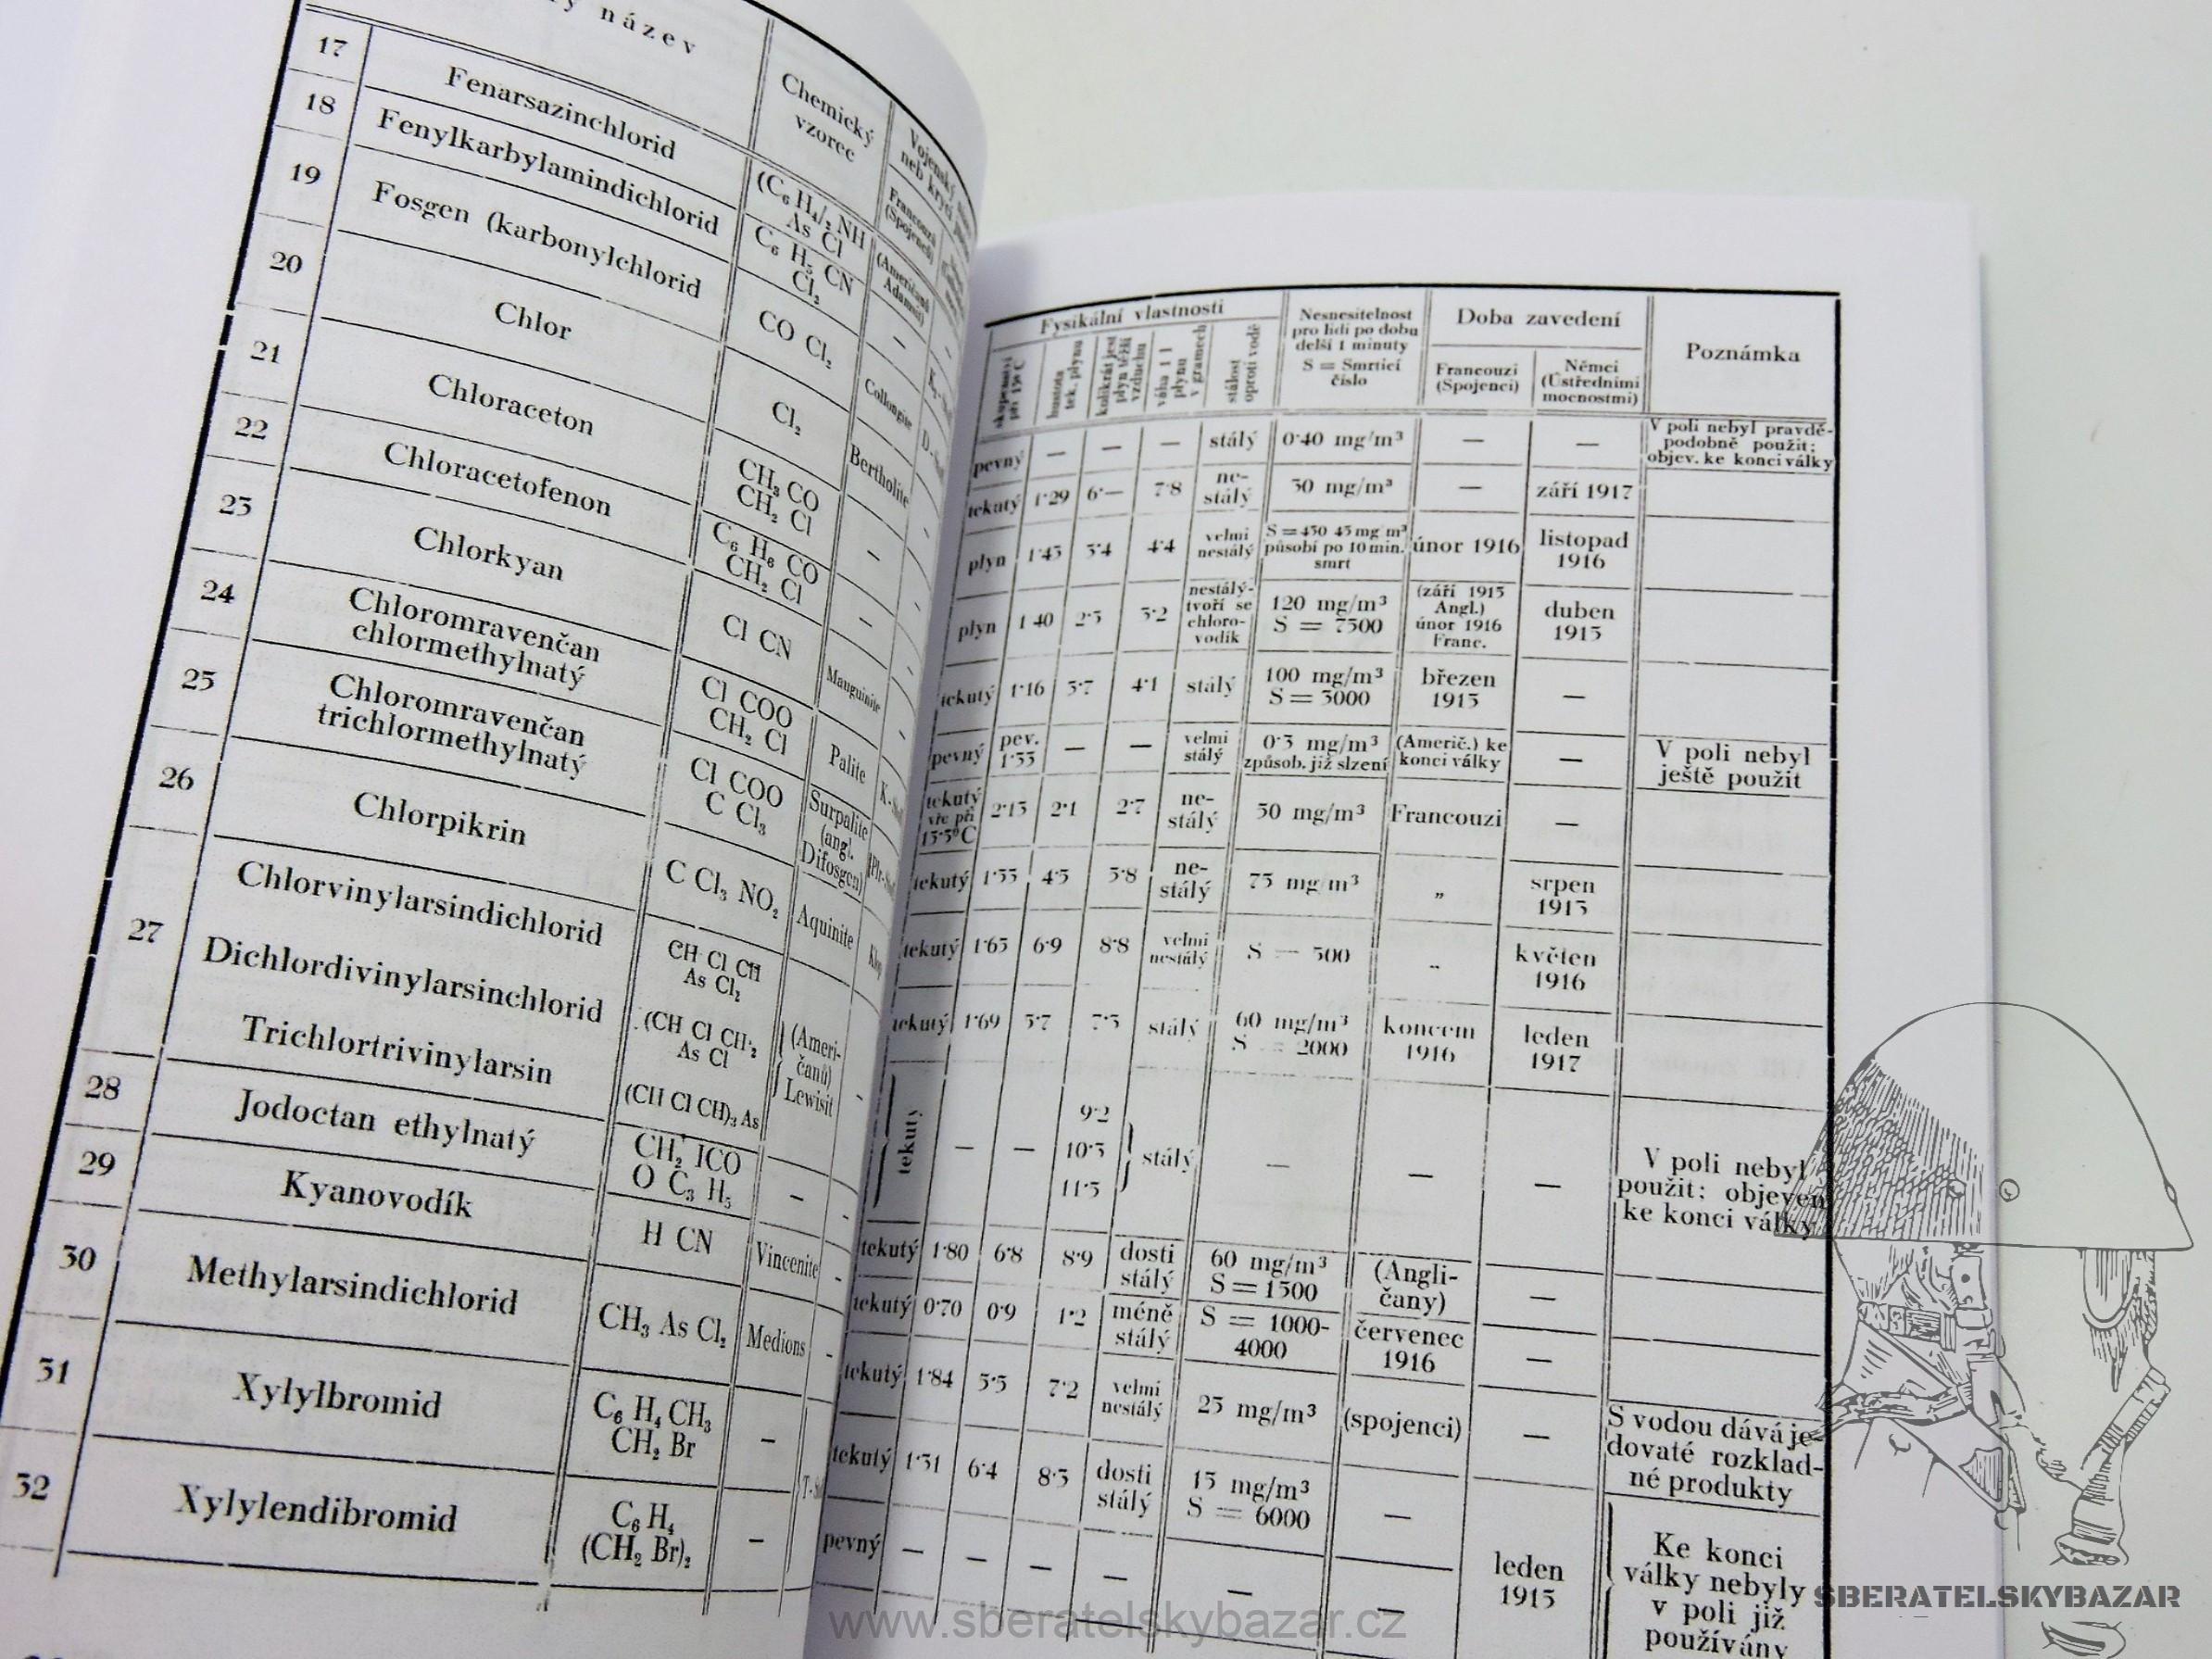 název
Chemický
vzorec
Vojenský
neb krycí
Francouzů
(Spojenců)
17
Fenarsazinchlorid
(C₆ H₄/₂ NH
As Cl
(Američanů
Adamsit)
18
Fenylkarbylamindichlorid
C₆ H₅ CN
Cl₂
—
19
Fosgen (karbonylchlorid
CO Cl₂
Collongite
20
Chlor
Cl₂
Bertholite
21
Chloraceton
CH₃ CO
CH₂ Cl
—
22
Chloracetofenon
C₆ H₆ CO
CH₂ Cl
—
23
Chlorkyan
Cl CN
Mauguinite
24
Chloromravenčan
chlormethylnatý
Cl COO
CH₂ Cl
Palite
25
Chloromravenčan
trichlormethylnatý
Cl COO
C Cl₃
Surpalite
(angl.
Difosgen)
26
Chlorpikrin
C Cl₃ NO₂
Aquinite
27
Chlorvinylarsindichlorid
CH Cl CH
As Cl₂
Dichlordivinylarsinchlorid
(CH Cl CH)₂
As Cl
Trichlortrivinylarsin
(CH Cl CH)₃ As
(Ameri-
čanů)
Lewisit
28
Jodoctan ethylnatý
CH₂ ICO
O C₃ H₅
—
29
Kyanovodík
H CN
Vincenite
30
Methylarsindichlorid
CH₃ As Cl₂
Medions
31
Xylylbromid
C₆ H₄ CH₃
CH₂ Br
—
32
Xylylendibromid
C₆ H₄
(CH₂ Br)₂
—
Fysikální vlastnosti
skupenství
při 15° C
hustota
tek. plynu
kolikrát jest
plyn těžší
vzduchu
váha 1 l
plynu
v gramech
stálost
oproti vodě
Nesnesitelnost
pro lidi po dobu
delší 1 minuty
S = Smrtící
číslo
Doba zavedení
Francouzi
(Spojenci)
Němci
(Ústředními
mocnostmi)
Poznámka
pevný — — — stálý 0·40 mg/m³ — —
V poli nebyl pravdě-
podobně použit;
objev. ke konci války
tekutý 1·29 6·— 7·8 ne-
stálý 30 mg/m³ — září 1917
plyn 1·43 3·4 4·4 velmi
nestálý
S = 450 45 mg m³
působí po 10 min.
smrt
únor 1916
listopad
1916
plyn 1·40 2·5 3·2
nestálý-
tvoří se
chloro-
vodík
120 mg/m³
S = 7500
(září 1915
Angl.)
únor 1916
Franc.
duben
1915
tekutý 1·16 3·7 4·1 stálý
100 mg/m³
S = 3000
březen
1915
—
pevný pev.
1·33 — — velmi
stálý
0·3 mg/m³
způsob. již slzení
(Americ.) ke
konci války
—
V poli nebyl
ještě použit
tekutý
vře při
15·5°C
2·13 2·1 2·7 ne-
stálý
50 mg/m³ Francouzi —
tekutý 1·53 4·5 5·8 ne-
stálý
75 mg m³ „
srpen
1915
tekutý 1·65 6·9 8·8 velmi
nestálý
S = 500 „
květen
1916
tekutý 1·69 5·7 7·5 stálý
60 mg/m³
S = 2000
koncem
1916
leden
1917
tekutý — —
9·2
10·3
11·5
stálý — — —
V poli nebyl
použit; objeven
ke konci války
tekutý 1·80 6·8 8·9 dosti
stálý
60 mg/m³
S = 1500
(Angli-
čany)
—
tekutý 0·70 0·9 1·2 méně
stálý
S = 1000-
4000
červenec
1916
—
tekutý 1·84 5·5 7·2 velmi
nestálý
25 mg/m³ (spojenci) —
S vodou dává je-
dovaté rozklad-
né produkty
tekutý 1·31 6·4 8·3 dosti
stálý
15 mg/m³
S = 6000
—
pevný — — — — — —
leden
1915
Ke konci
války nebyly
v poli již
používány
SBERATELSKYBAZAR
www.sberatelskybazar.cz